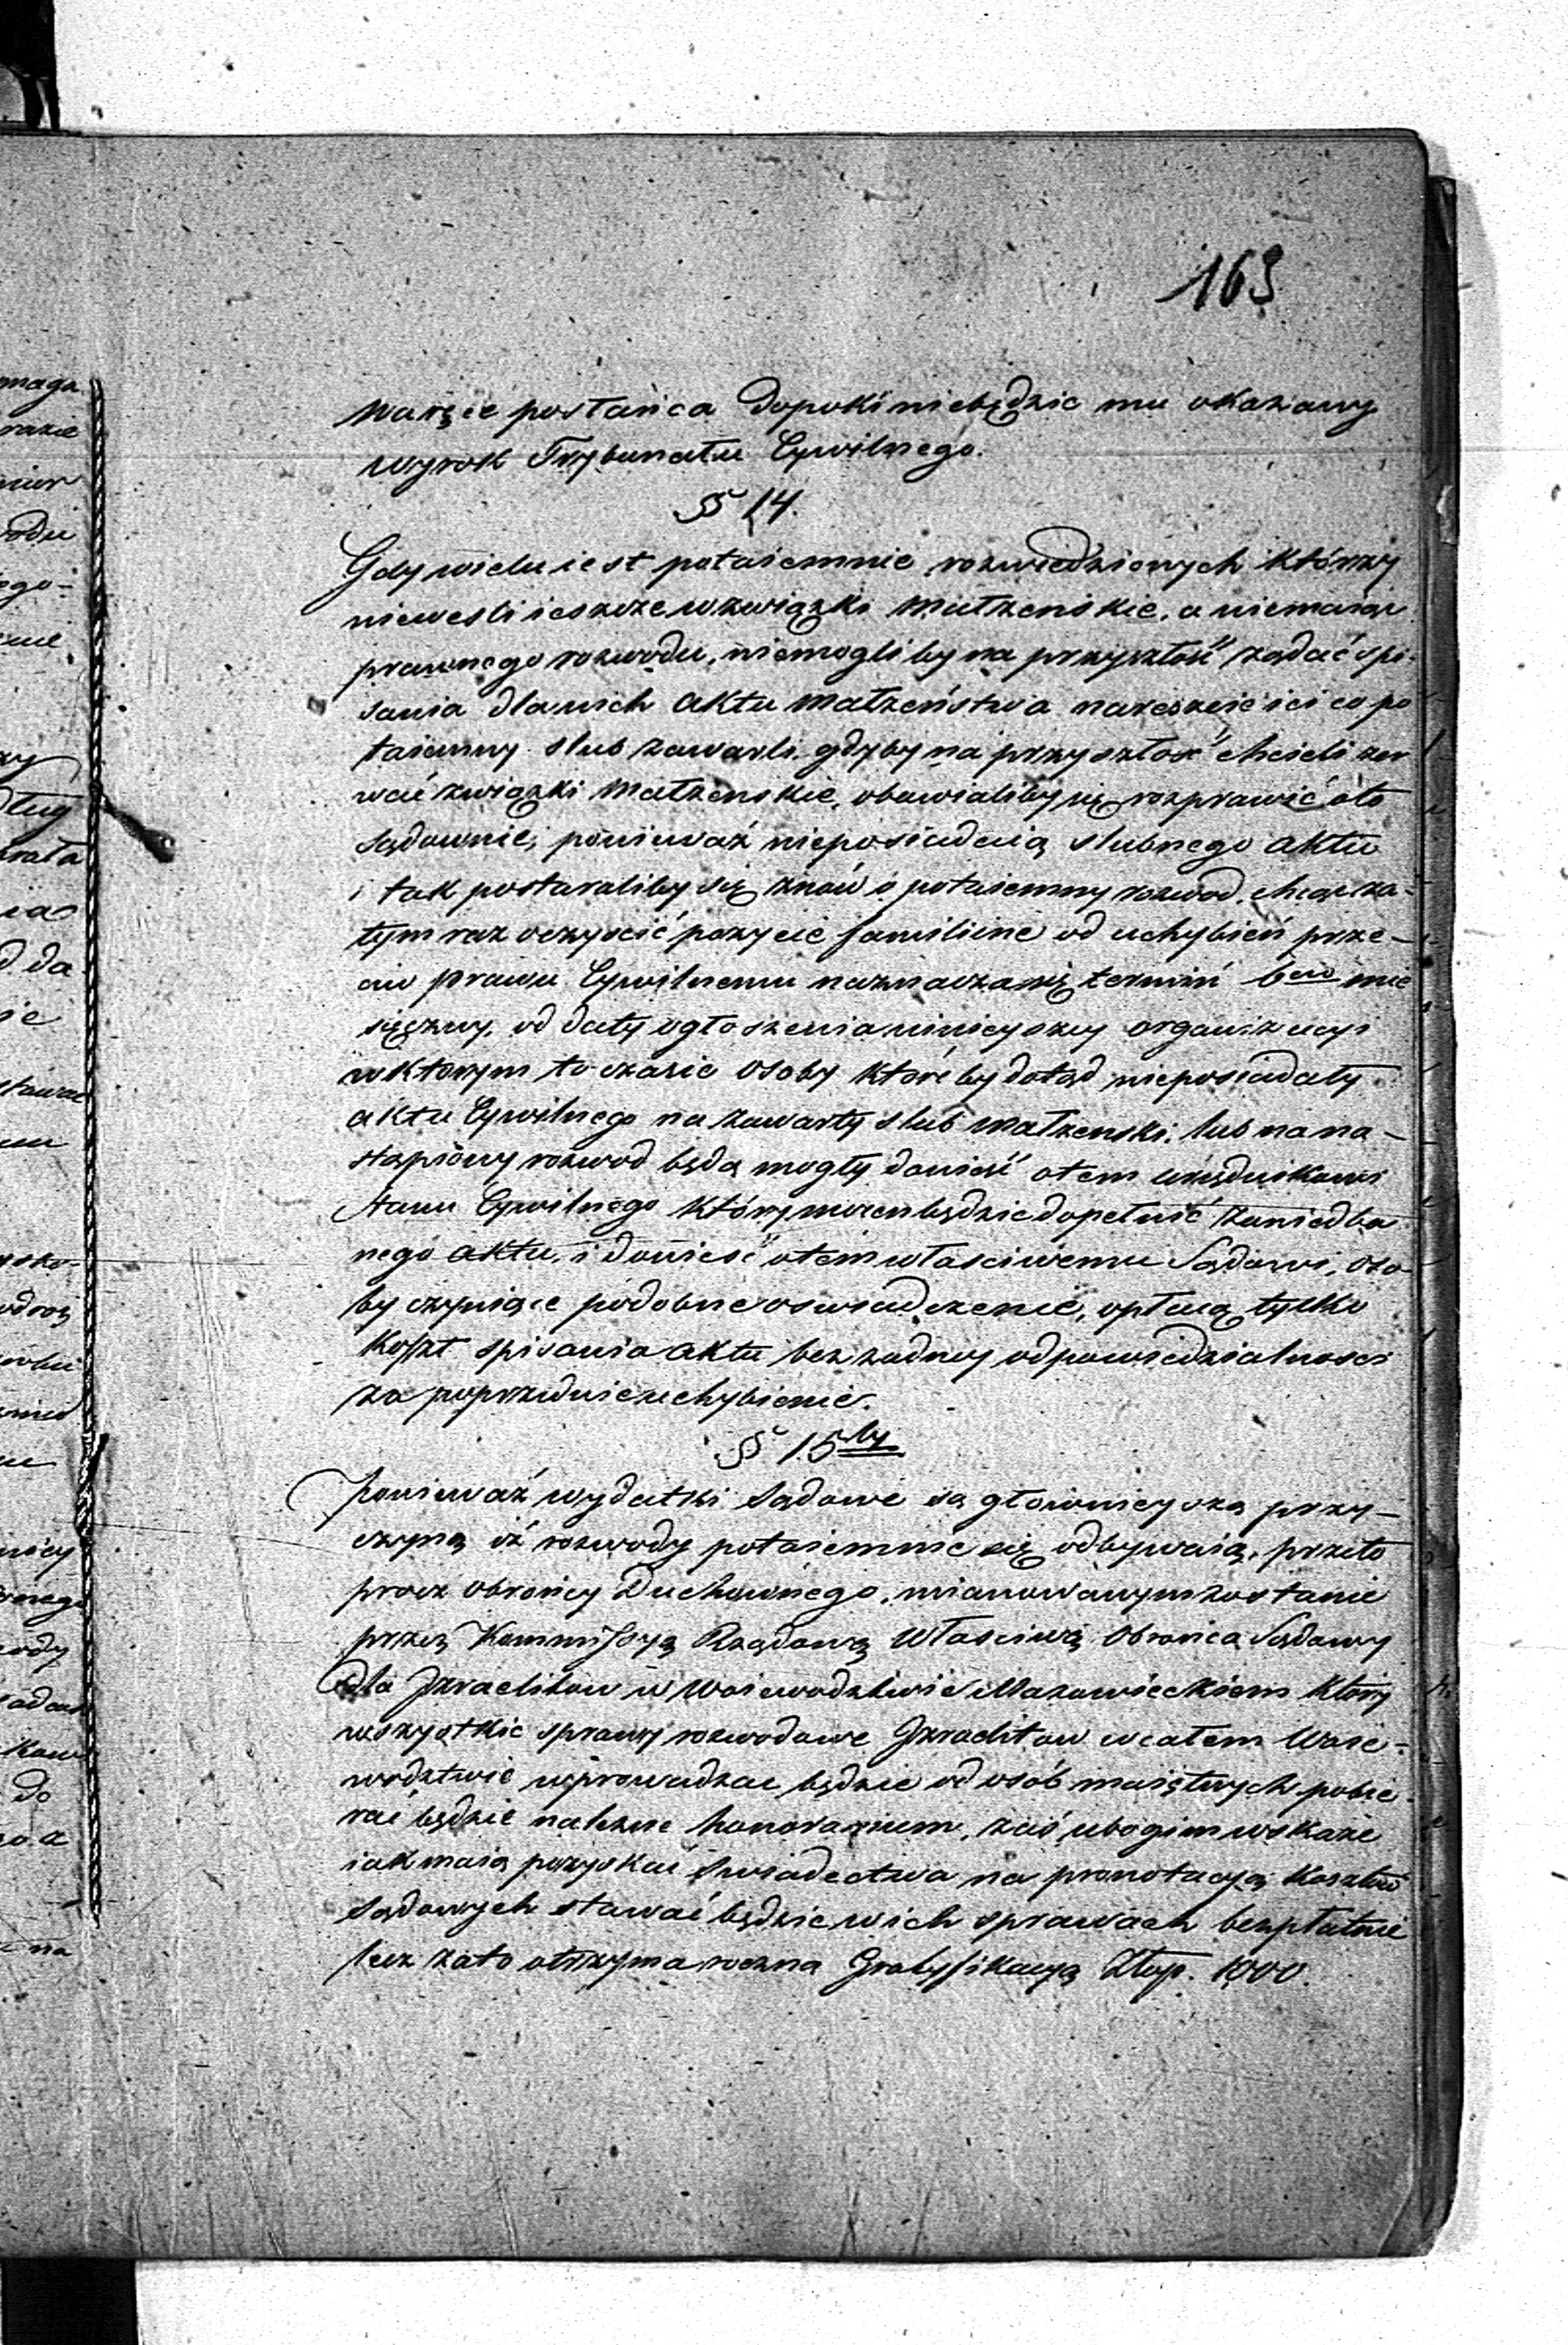 163
waręce postańca dopoki niebędzie mu okazany
wyrok Trybunału Cywilnego.
§ 14.
Gdy wielu iest potaiemnie rozwiedzionych którzy
nieweszli ieszcze w związki małżenskie, a niemaiąc
prawnego rozwodu, niemogliby na przyszłość żądać spi-
sania dla nich aktu małżeństwa nareszcie ici co po
taiemny slub zawarli gdyby na przyszłość chcieli zer
wać związki małżenskie, obawialiby się rozprawić oto
sądownie, ponieważ nieposiadaią slubnego aktu
i tak postaraliby się znów o potaiemny rozwod, chcąc za-
tym raz oczyscić pożycie familiine od uchybień prze-
ciw prawu Cywilnemu naznacza się termin 6cio mie
sięczny, od daty ogłoszenia ninieyszey organizacyi
w ktorym to czasie osoby któreby dotąd nieposiadały
aktu Cywilnego na zawarty slub małzenski, lub na na-
stąpiony rozwod będą mogły donieść otem urzędnikowi
Stanu Cywilnego który winien będzie dopełnić zaniedba
nego aktu, i donieść otem własciwemu Sądowi, oso
by czyniące podobne oswiadczenie, opłacą tylko
koszt spisania aktu bez żadney odpowiedzialnosci
za poprzednie uchybienie.
§ 15ty
Ponieważ wydatki Sądowe są głownieyszą przy-
czyną iż rozwody potaiemnie się odbywaią, przeto
procz obrońcy Duchownego, mianowanym zostanie
przez Kommissyą Rządową Własciwą Obrońca Sądowy
dla Izraelitow w Woiewodztwie Mazowieckiem który
wszystkie sprawy rozwodowe Izraelitow w całem Woie-
wodztwie uprowadzać będzie od osób maiętnych pobie
rać będzie należne honorarium, zaś ubogim wskaże
iak maią pozyskać swiadectwa na pronotacyą kosztów
Sądowych stawać będzie w ich sprawach bezpłatnie
lecz zato otrzyma roczna Gratyfikacyą Złop. 1000.